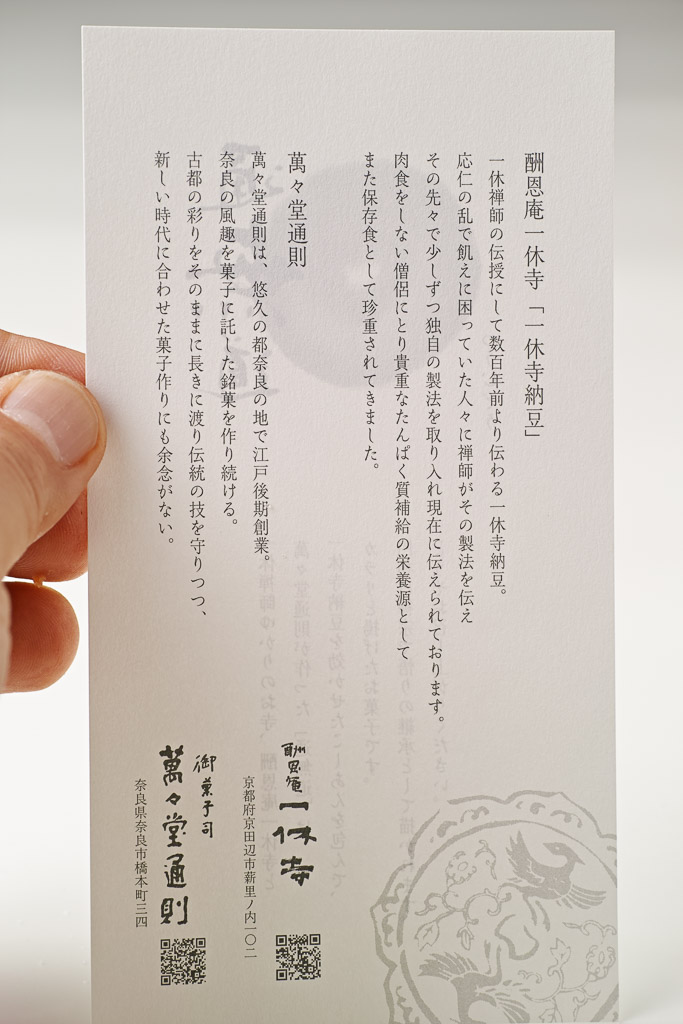 酬恩庵一休寺「一休寺納豆」
一休禅師の伝授にして数百年前より伝わる一休寺納豆。
応仁の乱で飢えに困っていた人々に禅師がその製法を伝え
その先々で少しずつ独自の製法を取り入れ現在に伝えられております。
肉食をしない僧侶にとり貴重なたんぱく質補給の栄養源として
また保存食として珍重されてきました。
萬々堂通則
萬々堂通則は、悠久の都奈良の地で江戸後期創業。
奈良の風趣を菓子に託した銘菓を作り続ける。
古都の彩りをそのままに長きに渡り伝統の技を守りつつ、
新しい時代に合わせた菓子作りにも余念がない。
酬恩庵一休寺
京都府京田辺市薪里ノ内一〇二
御菓子司
萬々堂通則
奈良県奈良市橋本町三四